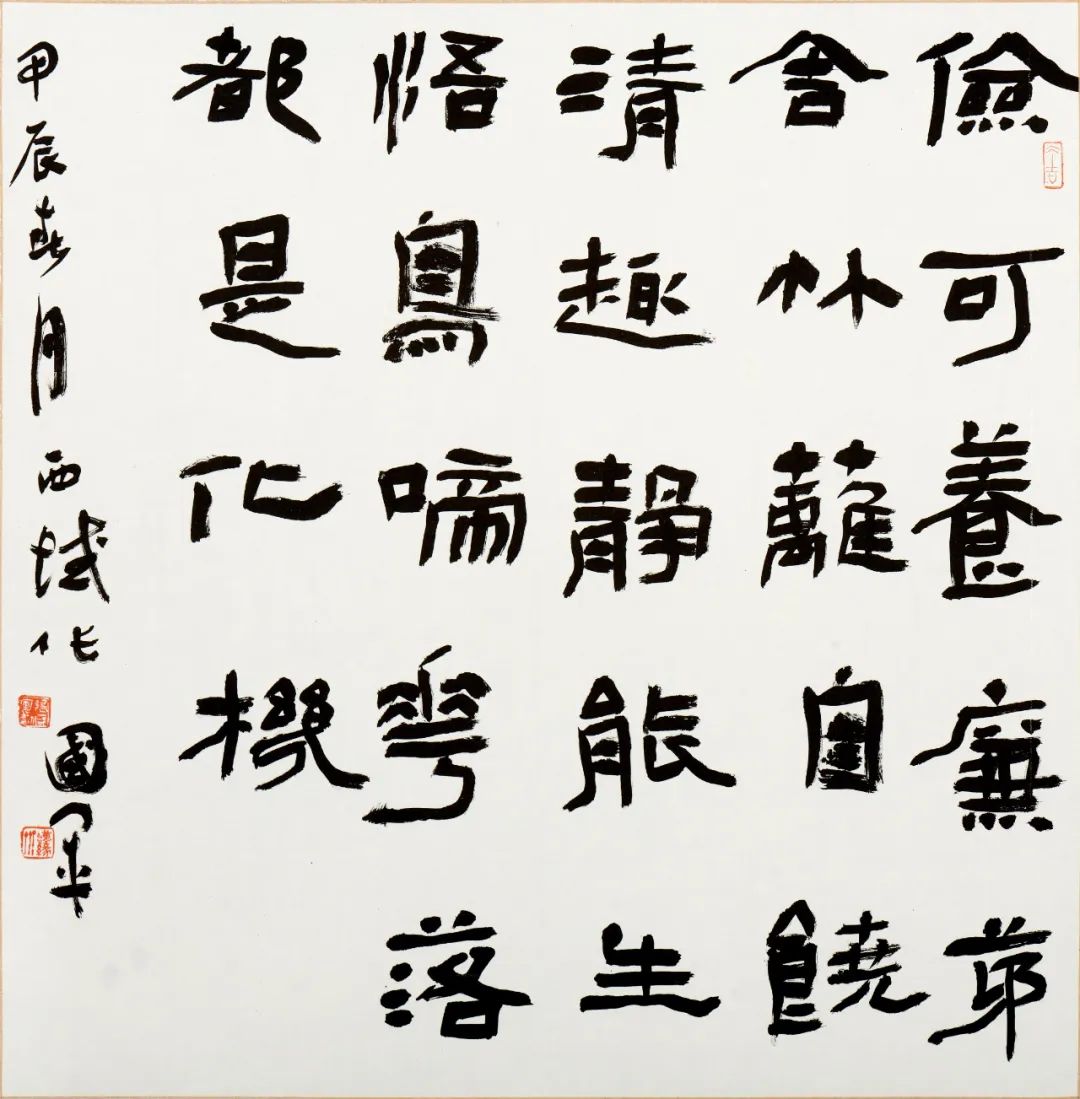 儉可養廉茅
舍竹蘺自饒
清趣靜能生
悟鳥啼華落
都是化機
甲辰春月西域國軍